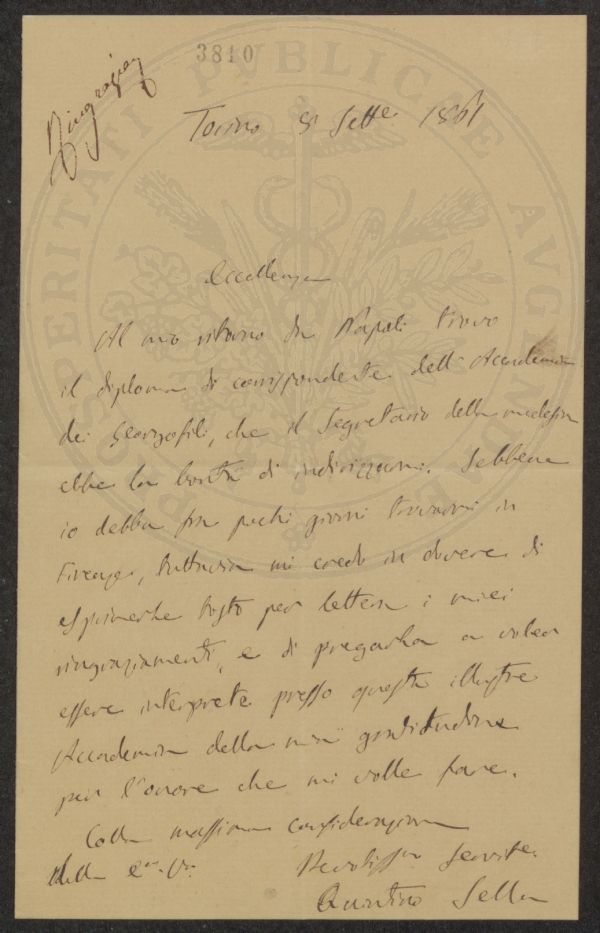 3810
Ringraziam
Torino 8 Sette 1861
Eccellenza
Al mio ritorno da Napoli trovo
il diploma di corrispondente dell'Accademia
dei Georgofili, che il Segretario della medesima
ebbe la bontà di indirizzarmi. Sebbene
io debba fra pochi giorni trovarmi in
Firenze, tuttavia mi credo in dovere di
esprimerle tosto per lettera i miei
ringraziamenti, e di pregarla a voler
essere interprete presso questa illustre
Accademia della mia gratitudine
per l'onore che mi volle fare.
Colla massima considerazione
della E. V.
Devotissimo Servite.
Quintino Sella
PROSPERITATI PVBLICAE AVGENDAE